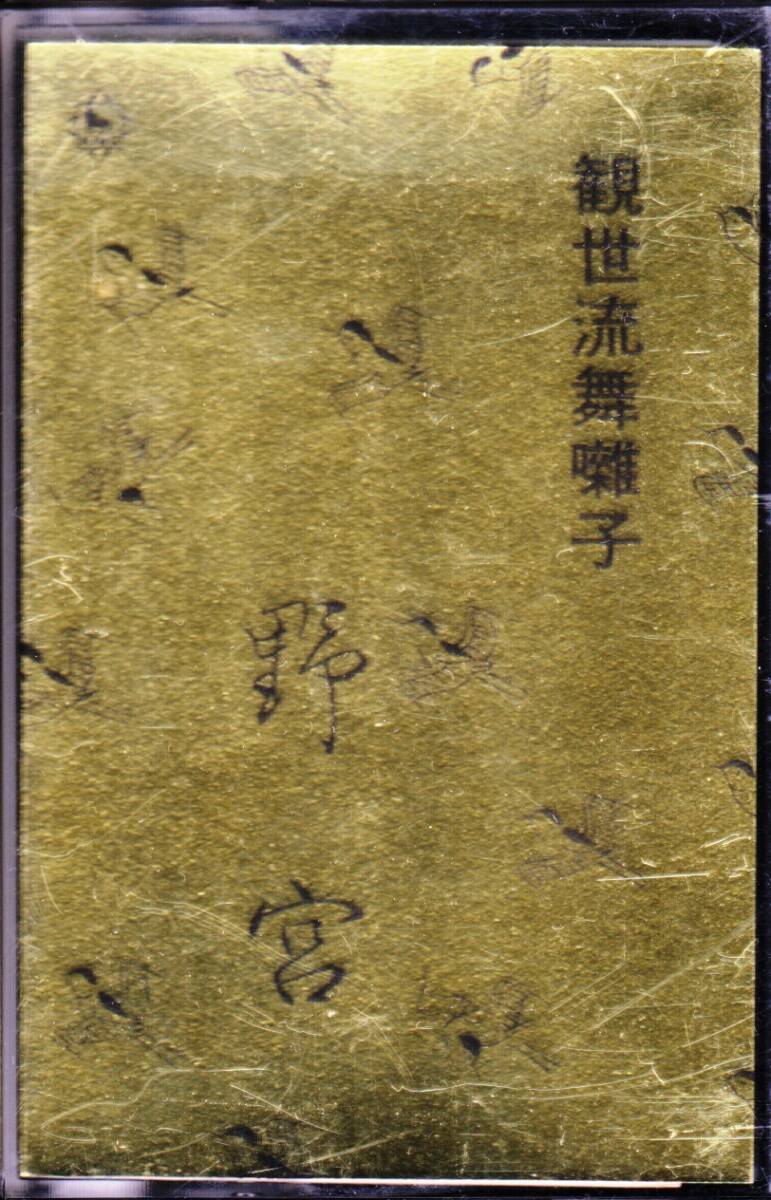 観世流舞囃子
野宮